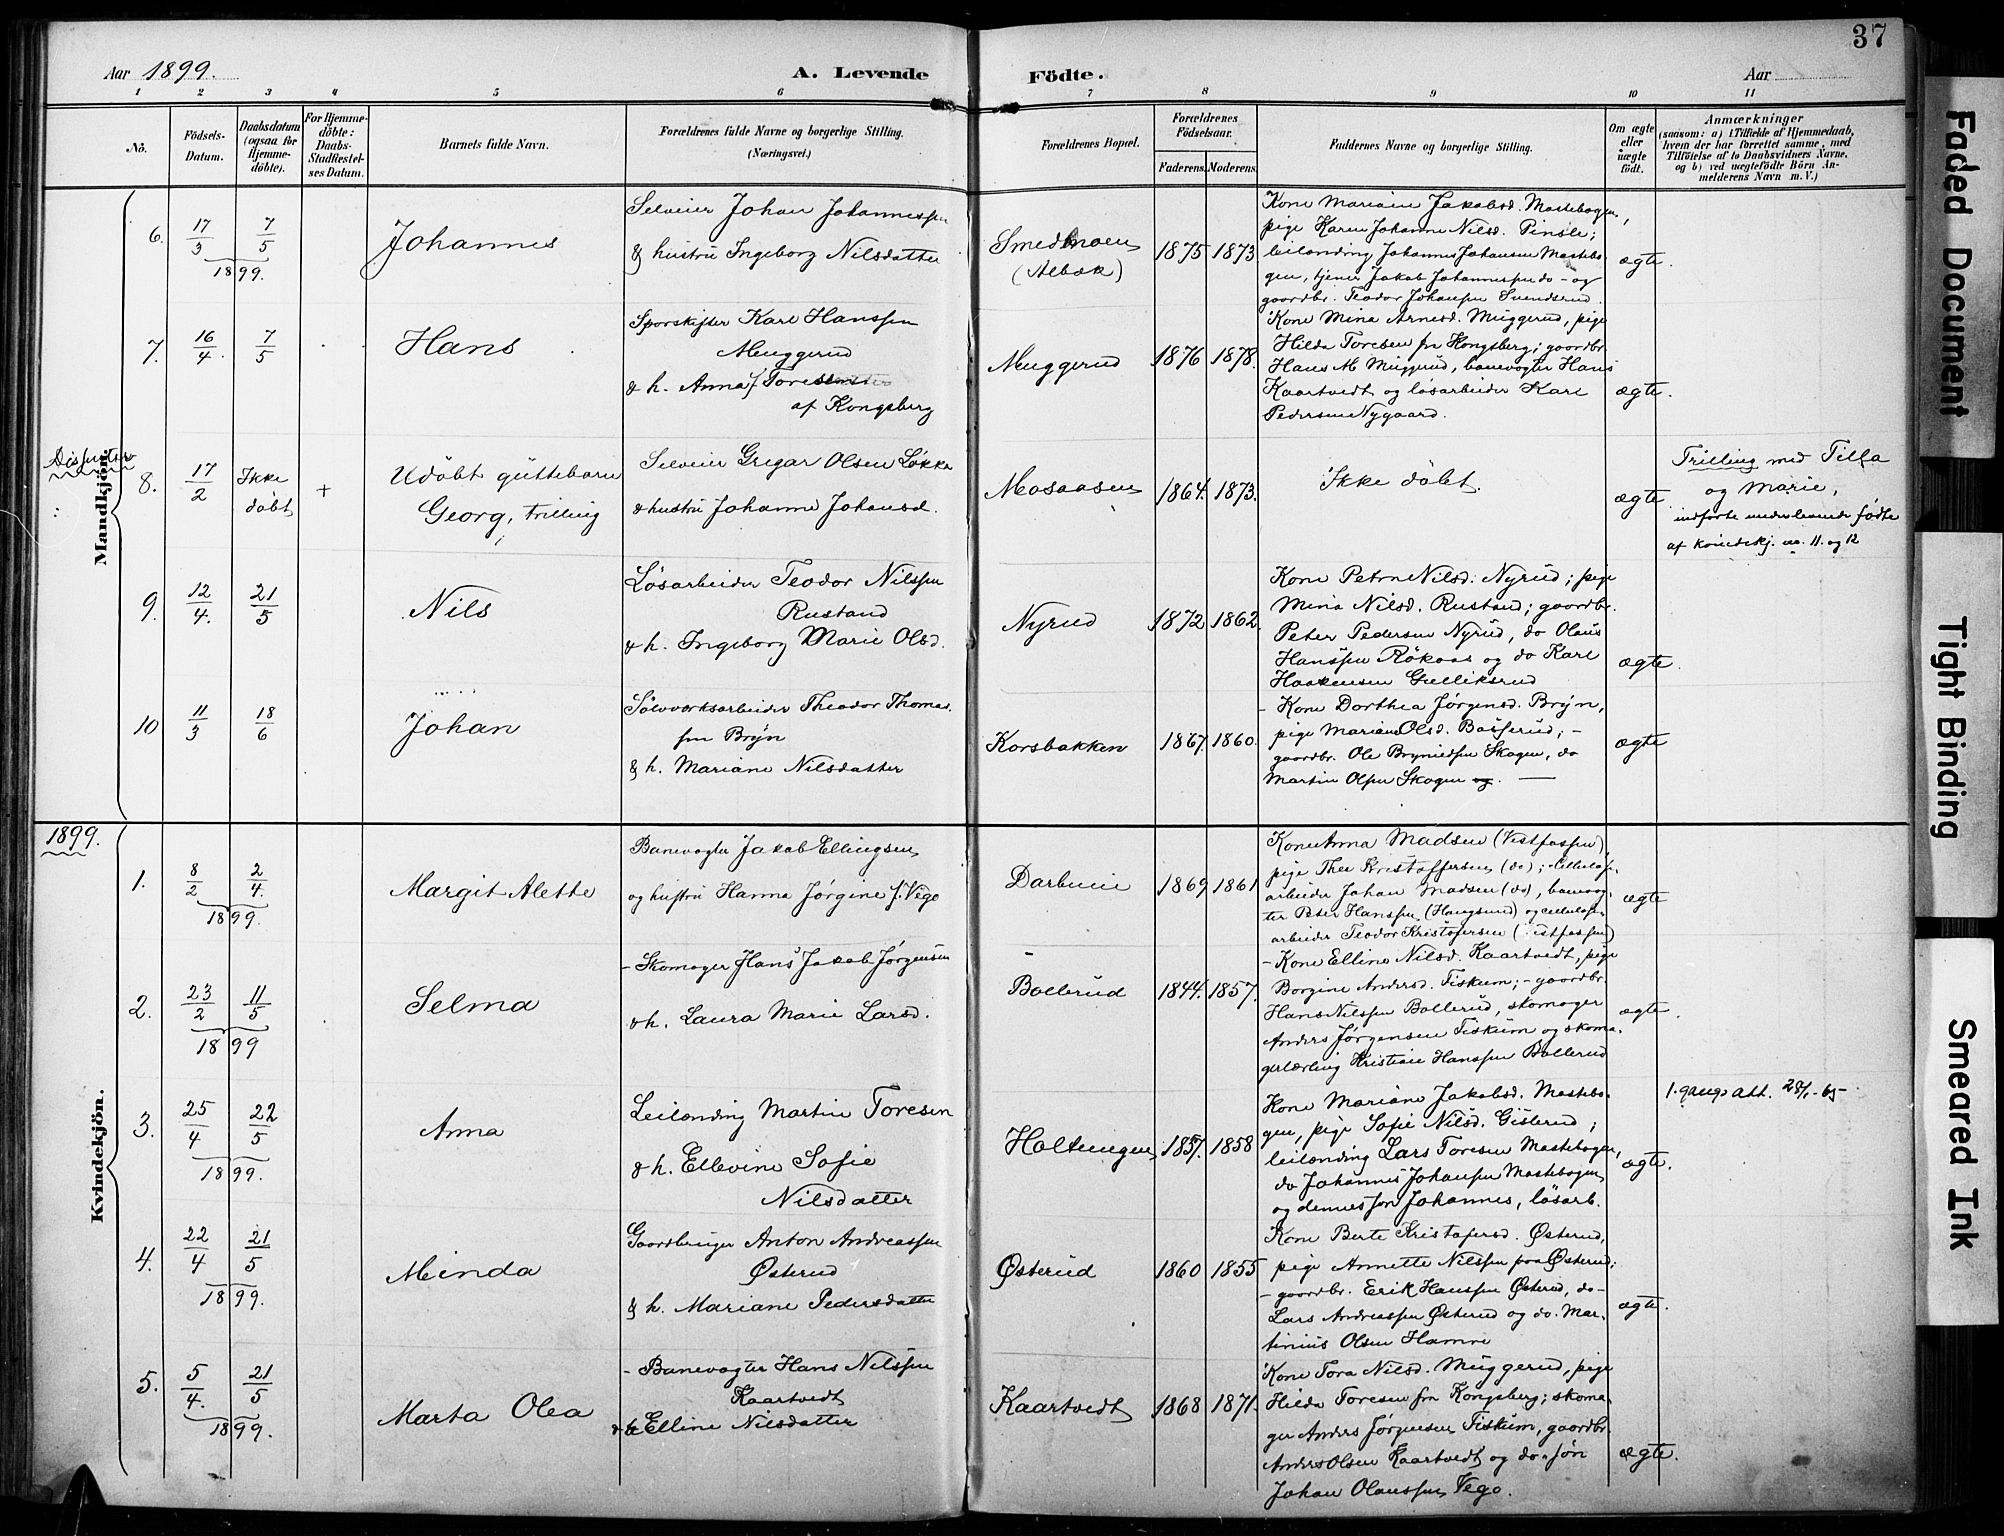 37
Aar 1899.
A. Levende Födte.
Aar
1 2 3 4 5 6 7 8 9 10 11
No.
Födsels-Datum.
Daabsdatum (ogsaa for Hjemmedöbte).
For Hjemmedöbte: Daabs-Stadfæstelses Datum.
Barnets fulde Navn.
Forældrenes fulde Navne og borgerlige Stilling.
(Næringsvei.)
Forældrenes Bopæl.
Forældrenes Födselsaar.
Faderens. Moderens.
Faddernes Navne og borgerlige Stilling.
Om ægte eller uægte födt.
Anmærkninger
(saasom: a) i Tilfælde af Hjemmedaab,
hvem der har forrettet samme, med
Tilföielse af to Daabsvidners Navne,
og b) ved uægtefödte Börn An-
melderens Navn m. V.)
Mandkjön.
6. 17/3 7/5 1899.
Johannes
Selveier Johan Johannessen
& hustru Ingeborg Nilsdatter
Smedmoen
(Albæk)
1875 1873
Kone Mariane Jakobsd. Mastebogen,
pige Karen Johanne Nilsd. Pinsle;
leilænding Johannes Johansen Mastebo-
gen, tjener Jakob Johannessen do - og
gaardbr. Teodor Johansen Svendsrud.
ægte.
7. 16/4. 7/5
Hans
Sporskifter Karl Hanssen
Muggerud
& h. Anna f. Toresen
af Kongsberg
Muggerud
1876 1878.
Kone Mina Arnesd. Muggerud, pige
Hilda Toresen fra Kongsberg; gaardbr.
Hans M Muggerud, banevogter Hans
Kaartvedt og løsarbeider Karl
Pedersen Nygaard.
ægte.
8. 17/2 Ikke døbt +
Udöbt guttebarn
Georg, trilling
Selveier Gregar Olsen Løkka
& hustru Johanne Johansd.
Mosaasen
1864. 1873.
Ikke døbt.
ægte
Trilling med Tilla
og Marie,
indførte under levende fødte
af kvindekj. no. 11. og 12
9. 12/4. 21/5
Nils
Løsarbeider Teodor Nilssen
Rustand
& h. Ingeborg Marie Olsd.
Nyrud
1872 1862.
Kone Petra Nilsd. Nyrud; pige
Mina Nilsd. Rustand; gaardbr.
Peter Pedersen Nyrud, do Olaus
Hanssen Røkaas og do Karl
Haakensen Gulliksrud
ægte.
10 11/3 18/6
Johan
Sølvverksarbeider Theodor Thomas-
sen Bryn
& h. Mariane Nilsdatter
Korsbakken
1867. 1860.
- Kone Dorthea Jørgensd. Bryn,
pige Mariane Olsd. Basserud; -
gaardbr. Ole Bryniedsen Skogen, do
Martin Olsen Skogen og. —
ægte
Kvindekjön.
1899.
1. 8/2 2/4. 1899.
Margit Alette
Banevogter Jakob Ellingsen
og hustru Hanna Jørgine f. Vego
Darbuie
1869 1861
Kone Anna Madsen (Vestfossen),
pige Thea Kristoffersen (do); cellulose-
arbeider Johan Madsen (do), banevog-
ter Peter Hanssen (Haugsund) og cellulose-
arbeider Teodor Kristofersen (Vestfossen)
ægte
2. 23/2 11/5 1899
Selma
- Skomager Hans Jakob Jørgensen
& h. Laura Marie Larsd.
Bollerud
1844. 1857.
- Kone Elline Nilsd. Kaartvedt, pige
Borgine Andersd. Fiskum; - gaardbr.
Hans Nilssen Bollerud, skomager
Anders Jørgensen Fiskum og skoma-
gerlærling Kristian Hanssen Bollerud
ægte.
3. 25/4 22/5 1899.
Anna
Leilænding Martin Toresen
& h. Ellevine Sofie
Nilsdatter
Holtengen
1857. 1858
Kone Mariane Jakobsd. Mastebo-
gen, pige Sofie Nilsd. Gisterud;
leilænding Lars Toresen Mastebogen,
do Johannes Johansen Mastebogen
og dennes søn Johannes, løsarb.
ægte.
1. gangs att. 28/1-65-
4. 22/4 21/5 1899.
Minda
Gaardbruger Anton Andreassen
Østerud
& h. Mariane Pedersdatter
Østerud
1860 1855
Kone Berte Kristofersd. Østerud,
pige Annette Nilssen paa Østerud;
- gaardbr. Erik Hanssen Østerud, do -
Lars Andreassen Østerud og do. Mar-
tinius Olsen Hamre
ægte.
5. 5/4. 21/5 1899.
Marta Olea
- Banevogter Hans Nilssen
Kaartvedt
& h Elline Nilsdatter
Kaartvedt
1868 1871.
Kone Tora Nilsd. Muggerud, pige
Hilda Toresen fra Kongsberg; skoma-
ger Anders Jørgensen Fiskum, gaardbr.
Anders Olsen Kaartvedt og do. søn
Johan Olaussen Vego.
ægte.
Faded Document
Tight Binding
Smeared Ink